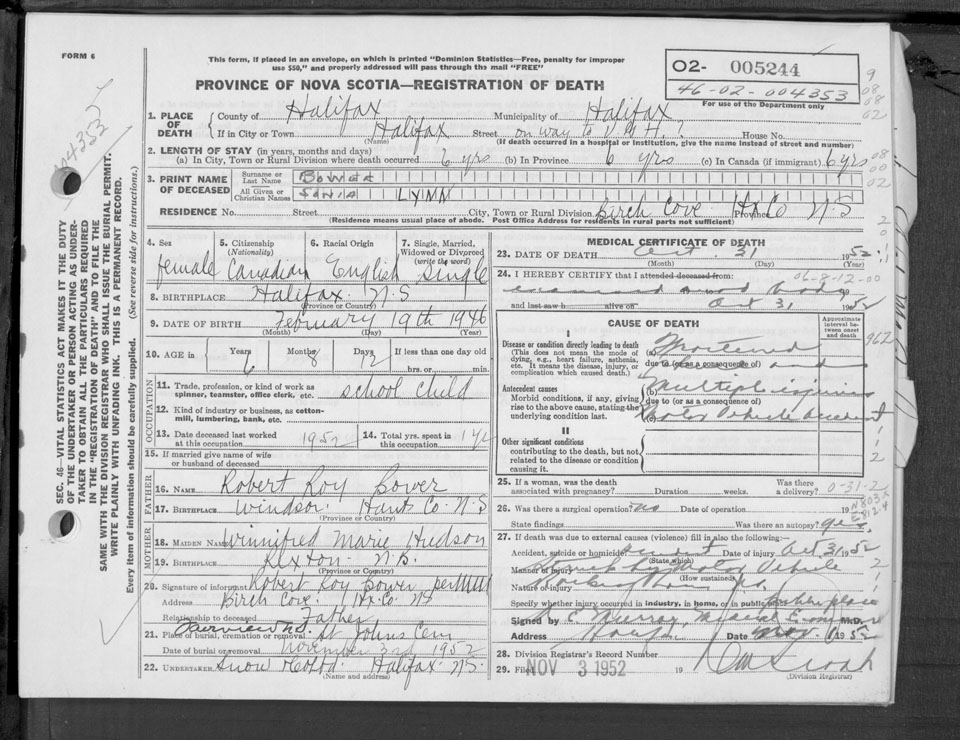 FORM 6
This form, if placed in an envelope, on which is printed "Dominion Statistics—Free, penalty for improper
use $50," and properly addressed will pass through the mail "FREE"
PROVINCE OF NOVA SCOTIA—REGISTRATION OF DEATH
02- 005244
46-02-004353
For use of the Department only
9
08
08
02
004353
1. PLACE OF DEATH
County of Halifax Municipality of Halifax
If in City or Town Halifax Street on way to V.G.H. ? House No.
(Name) (If death occurred in a hospital or institution, give the name instead of street and number)
2. LENGTH OF STAY (in years, months and days)
(a) In City, Town or Rural Division where death occurred 6 yrs (b) In Province 6 yrs (c) In Canada (if immigrant) 6 yrs
3. PRINT NAME OF DECEASED
Surname or Last Name BOWER
All Given or Christian Names SONIA LYNN
08
00
02
RESIDENCE No. Street City, Town or Rural Division Birch Cove Hx Co Province N S
(Residence means usual place of abode. Post Office Address for residents in rural parts not sufficient)
4. Sex 5. Citizenship (Nationality) 6. Racial Origin 7. Single, Married, Widowed or Divorced (write the word)
female Canadian English Single
8. BIRTHPLACE Halifax N.S
(Province or Country)
9. DATE OF BIRTH February 19th 1946
(Month) (Day) (Year)
10. AGE in Years 6 Months 8 Days 12 If less than one day old hrs. or min.
OCCUPATION
11. Trade, profession, or kind of work as spinner, teamster, office clerk, etc. school child
12. Kind of industry or business, as cotton-mill, lumbering, bank, etc.
13. Date deceased last worked at this occupation 1952 14. Total yrs. spent in this occupation 1 yr
15. If married give name of wife or husband of deceased
FATHER
16. NAME Robert Roy Bower
17. BIRTHPLACE Windsor Hants Co N S
(Province or Country)
MOTHER
18. MAIDEN NAME Winnifred Marie Hudson
19. BIRTHPLACE Rexton N.B.
(Province or Country)
20. Signature of informant Robert Roy Bower per
Address Birch Cove Hx. Co NS
Relationship to deceased Father
21. Place of burial, cremation or removal Fairview N S St Johns Cem
Date of burial or removal November 3rd 1952
22. UNDERTAKER Snow & Co Ltd. Halifax N S.
(Name and address)
MEDICAL CERTIFICATE OF DEATH
23. DATE OF DEATH Oct. 31 1952
(Month) (Day)
24. I HEREBY CERTIFY that I attended deceased from: 06-8-12-00
examined dead body
and last saw h alive on Oct 31 1952
CAUSE OF DEATH
Approximate interval between onset and death
I
Disease or condition directly leading to death (a)
(This does not mean the mode of dying, e.g., heart failure, asthenia, etc. It means the disease, injury, or complication which caused death.)
due to (or as a consequence of)
Antecedent causes (b) Multiple injuries
Morbid conditions, if any, giving rise to the above cause, stating the underlying condition last.
due to (or as a consequence of)
(c) Motor Vehicle accident
II
Other significant conditions contributing to the death, but not related to the disease or condition causing it.
962
25. If a woman, was the death associated with pregnancy? Duration weeks. Was there a delivery? 0-31-2
26. Was there a surgical operation? no Date of operation 19
State findings Was there an autopsy? yes
N803
E812.4
27. If death was due to external causes (violence) fill in also the following:
Accident, suicide or homicide? accident Date of injury Oct 31 1952
(State which)
Manner of injury Struck by Motor Vehicle
(How sustained)
Nature of injury
Specify whether injury occurred in industry, in home, or in public place public place
Signed by E. Murray, Medical Exam M.D.
Address Halifax Date Nov. 1 1952
28. Division Registrar's Record Number
29. Filed NOV 3 1952 19
(Division Registrar)
SEC. 46—VITAL STATISTICS ACT MAKES IT THE DUTY
OF THE UNDERTAKER OR PERSON ACTING AS UNDER-
TAKER TO OBTAIN ALL THE PARTICULARS REQUIRED
IN THE "REGISTRATION OF DEATH" AND TO FILE THE
SAME WITH THE DIVISION REGISTRAR WHO SHALL ISSUE THE BURIAL PERMIT.
WRITE PLAINLY WITH UNFADING INK. THIS IS A PERMANENT RECORD.
Every item of information should be carefully supplied. (See reverse side for instructions.)